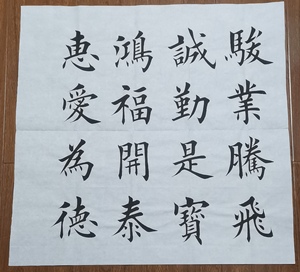 駿業騰飛
誠勤是寶
鴻福開泰
惠愛為德